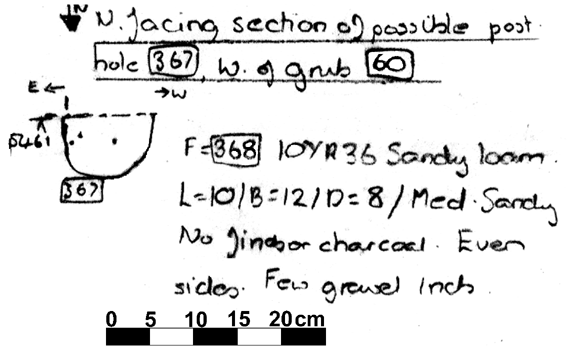 N
N. facing section of possible post
hole 367, W. of grub 60
E ←
→ W
367
F = 368 10YR36 Sandy loam.
L=10/B=12/D=8/Med. Sandy
No finds or charcoal. Even
sides. Few gravel incs.
0 5 10 15 20cm